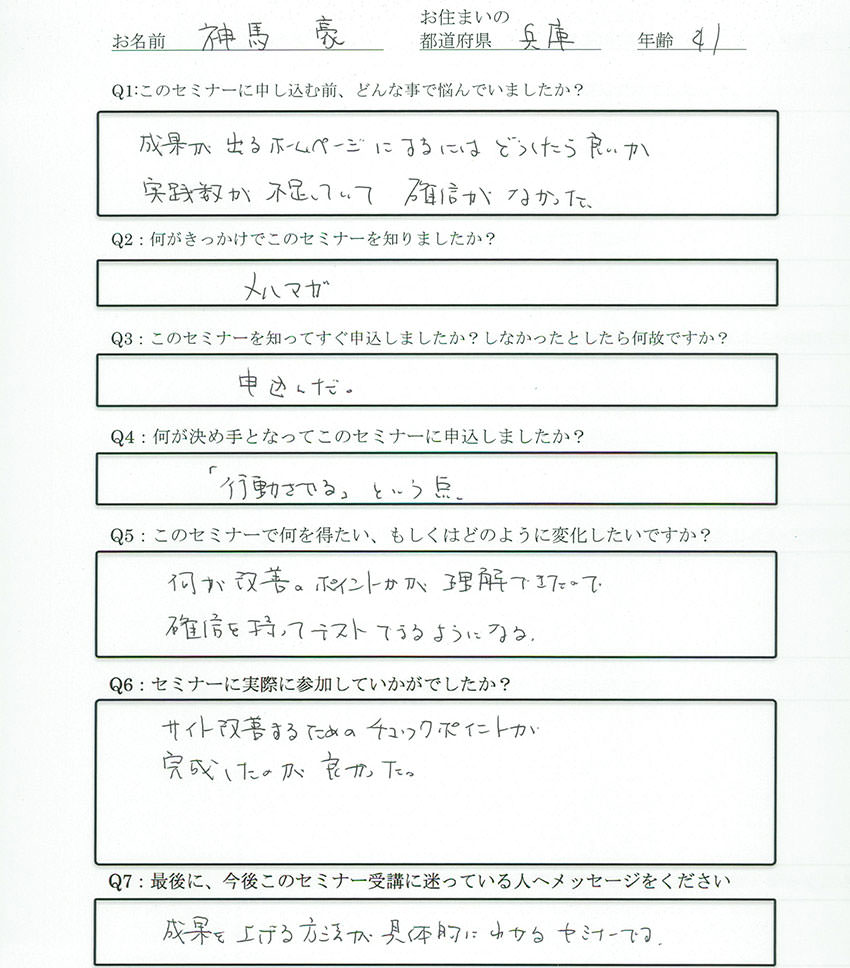 お名前 神馬 豪 お住まいの都道府県 兵庫 年齢 41
Q1:このセミナーに申し込む前、どんな事で悩んでいましたか？
成果が出るホームページにするにはどうしたら良いか
実践数が不足していて 確信がなかった。
Q2：何がきっかけでこのセミナーを知りましたか？
メルマガ
Q3：このセミナーを知ってすぐ申込しましたか？しなかったとしたら何故ですか？
申込んだ。
Q4：何が決め手となってこのセミナーに申込しましたか？
「行動させる」という点。
Q5：このセミナーで何を得たい、もしくはどのように変化したいですか？
何が改善のポイントかが理解できたので
確信を持ってテストできるようになる。
Q6：セミナーに実際に参加していかがでしたか？
サイト改善するためのチェックポイントが
完成したのが良かった。
Q7：最後に、今後このセミナー受講に迷っている人へメッセージをください
成果を上げる方法が具体的にわかるセミナーです。